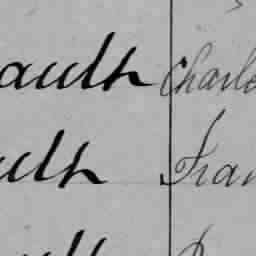 aulh Charle
ulh Fran